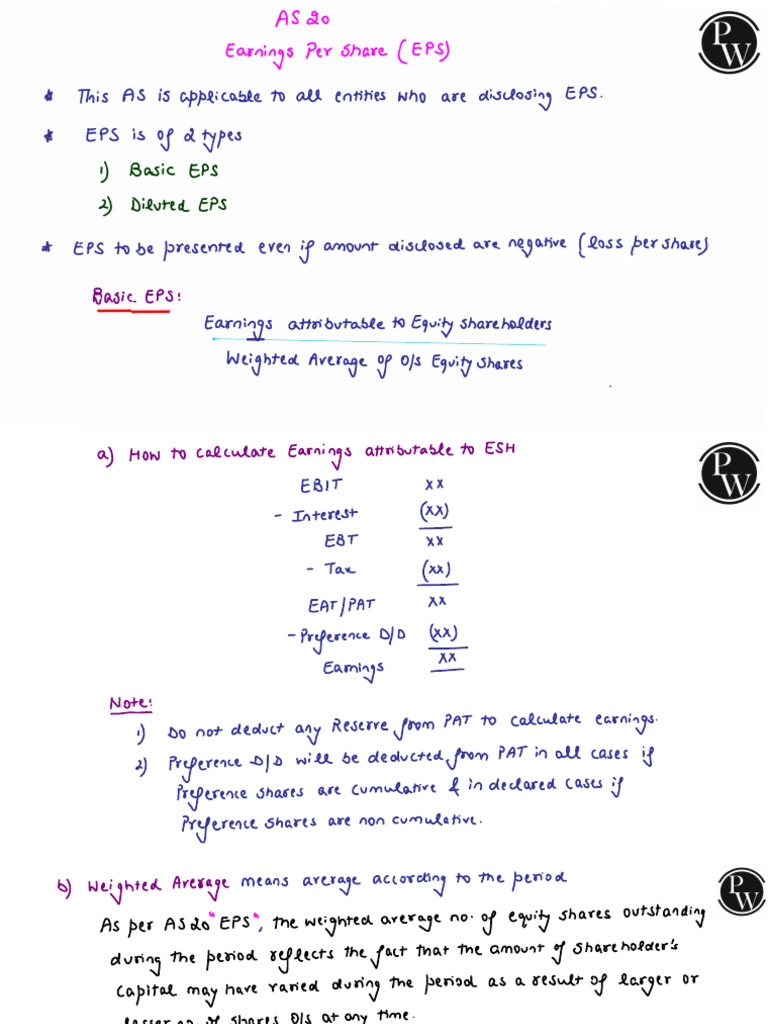 AS 20
PW
Earnings Per Share (EPS)
* This AS is applicable to all entities who are disclosing EPS.
* EPS is of 2 types
1) Basic EPS
2) Diluted EPS
* EPS to be presented even if amount disclosed are negative (loss per share)
Basic EPS:
Earnings attributable to Equity shareholders
Weighted Average of O/s Equity shares
a) How to calculate Earnings attributable to ESH
PW
EBIT xx
- Interest (xx)
EBT xx
- Tax (xx)
EAT/PAT xx
- Preference D/D (xx)
Earnings xx
Note:
1) Do not deduct any Reserve from PAT to calculate earnings.
2) Preference D/D will be deducted from PAT in all cases if
Preference shares are cumulative & in declared cases if
Preference shares are non cumulative.
b) Weighted Average means average according to the period
PW
As per AS 20 "EPS", the weighted average no. of equity shares outstanding
during the period reflects the fact that the amount of shareholder's
capital may have varied during the period as a result of larger or
lesser no. of shares O/s at any time.